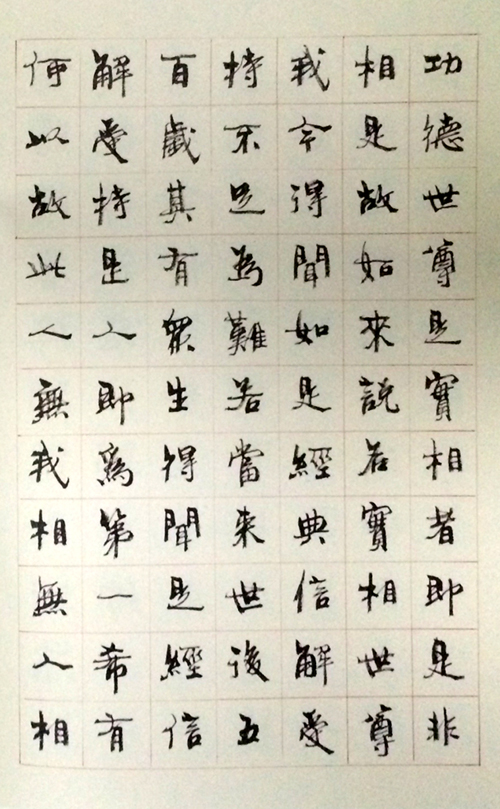 功德世尊是實相者即是非
相是故如來說名實相世尊
我今得聞如是經典信解受
持不足為難若當来世後五
百歲其有眾生得聞是經信
解受持是人即為第一希有
何以故此人無我相無人相